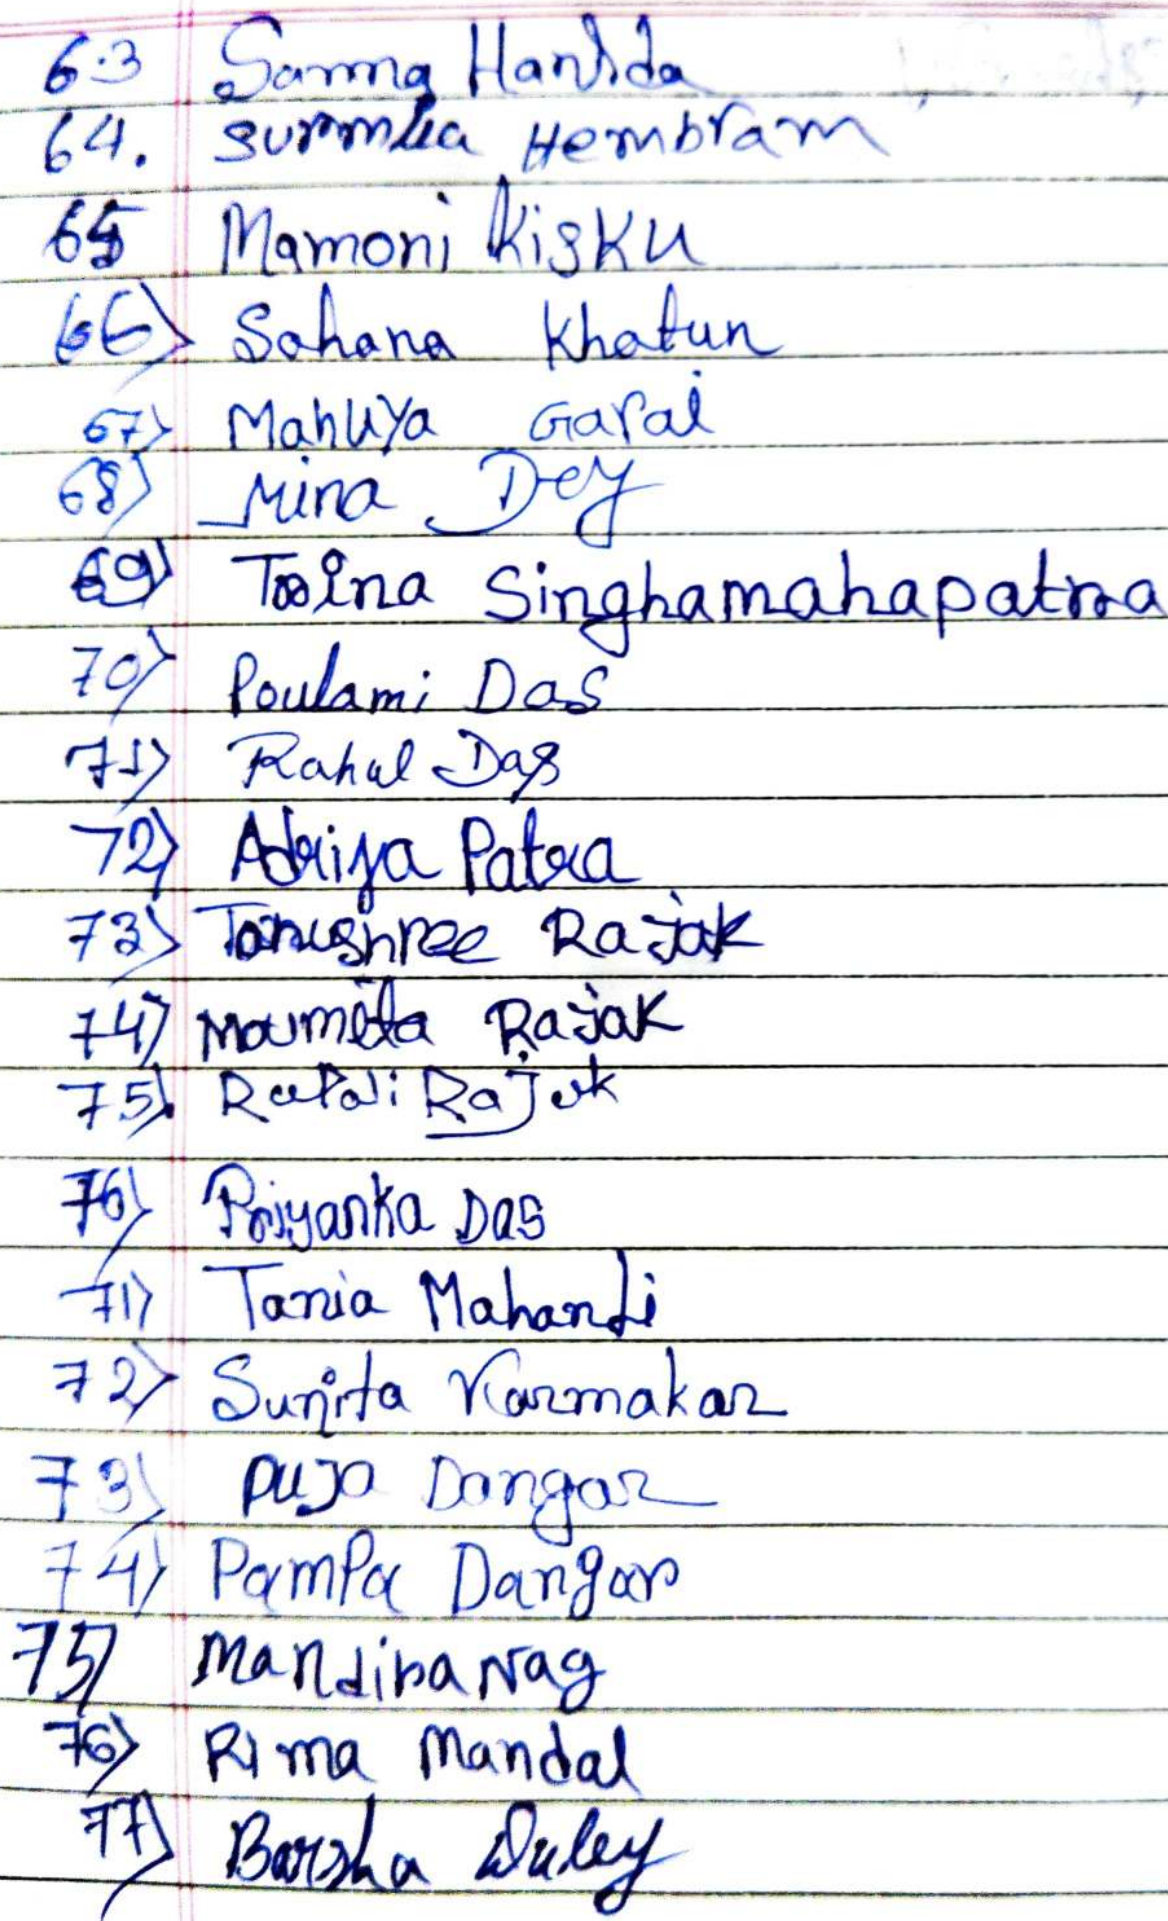 63 Sarna Hansda
64. Surmila Hembram
65 Mamoni Kisku
66) Sahana Khatun
67) Mahuya Garai
68) Mina Dey
69) Toina Singhamahapatra
70) Poulami Das
71) Rahul Das
72) Adrija Patra
73) Tanushree Rajak
74) Moumita Rajak
75). Rupali Rajak
76) Priyanka Das
71) Tania Mahandi
72) Sunita Karmakar
73) Puja Dangar
74) Pampa Dangar
75) Mandira Nag
76) Rima Mandal
77) Barsha Duley